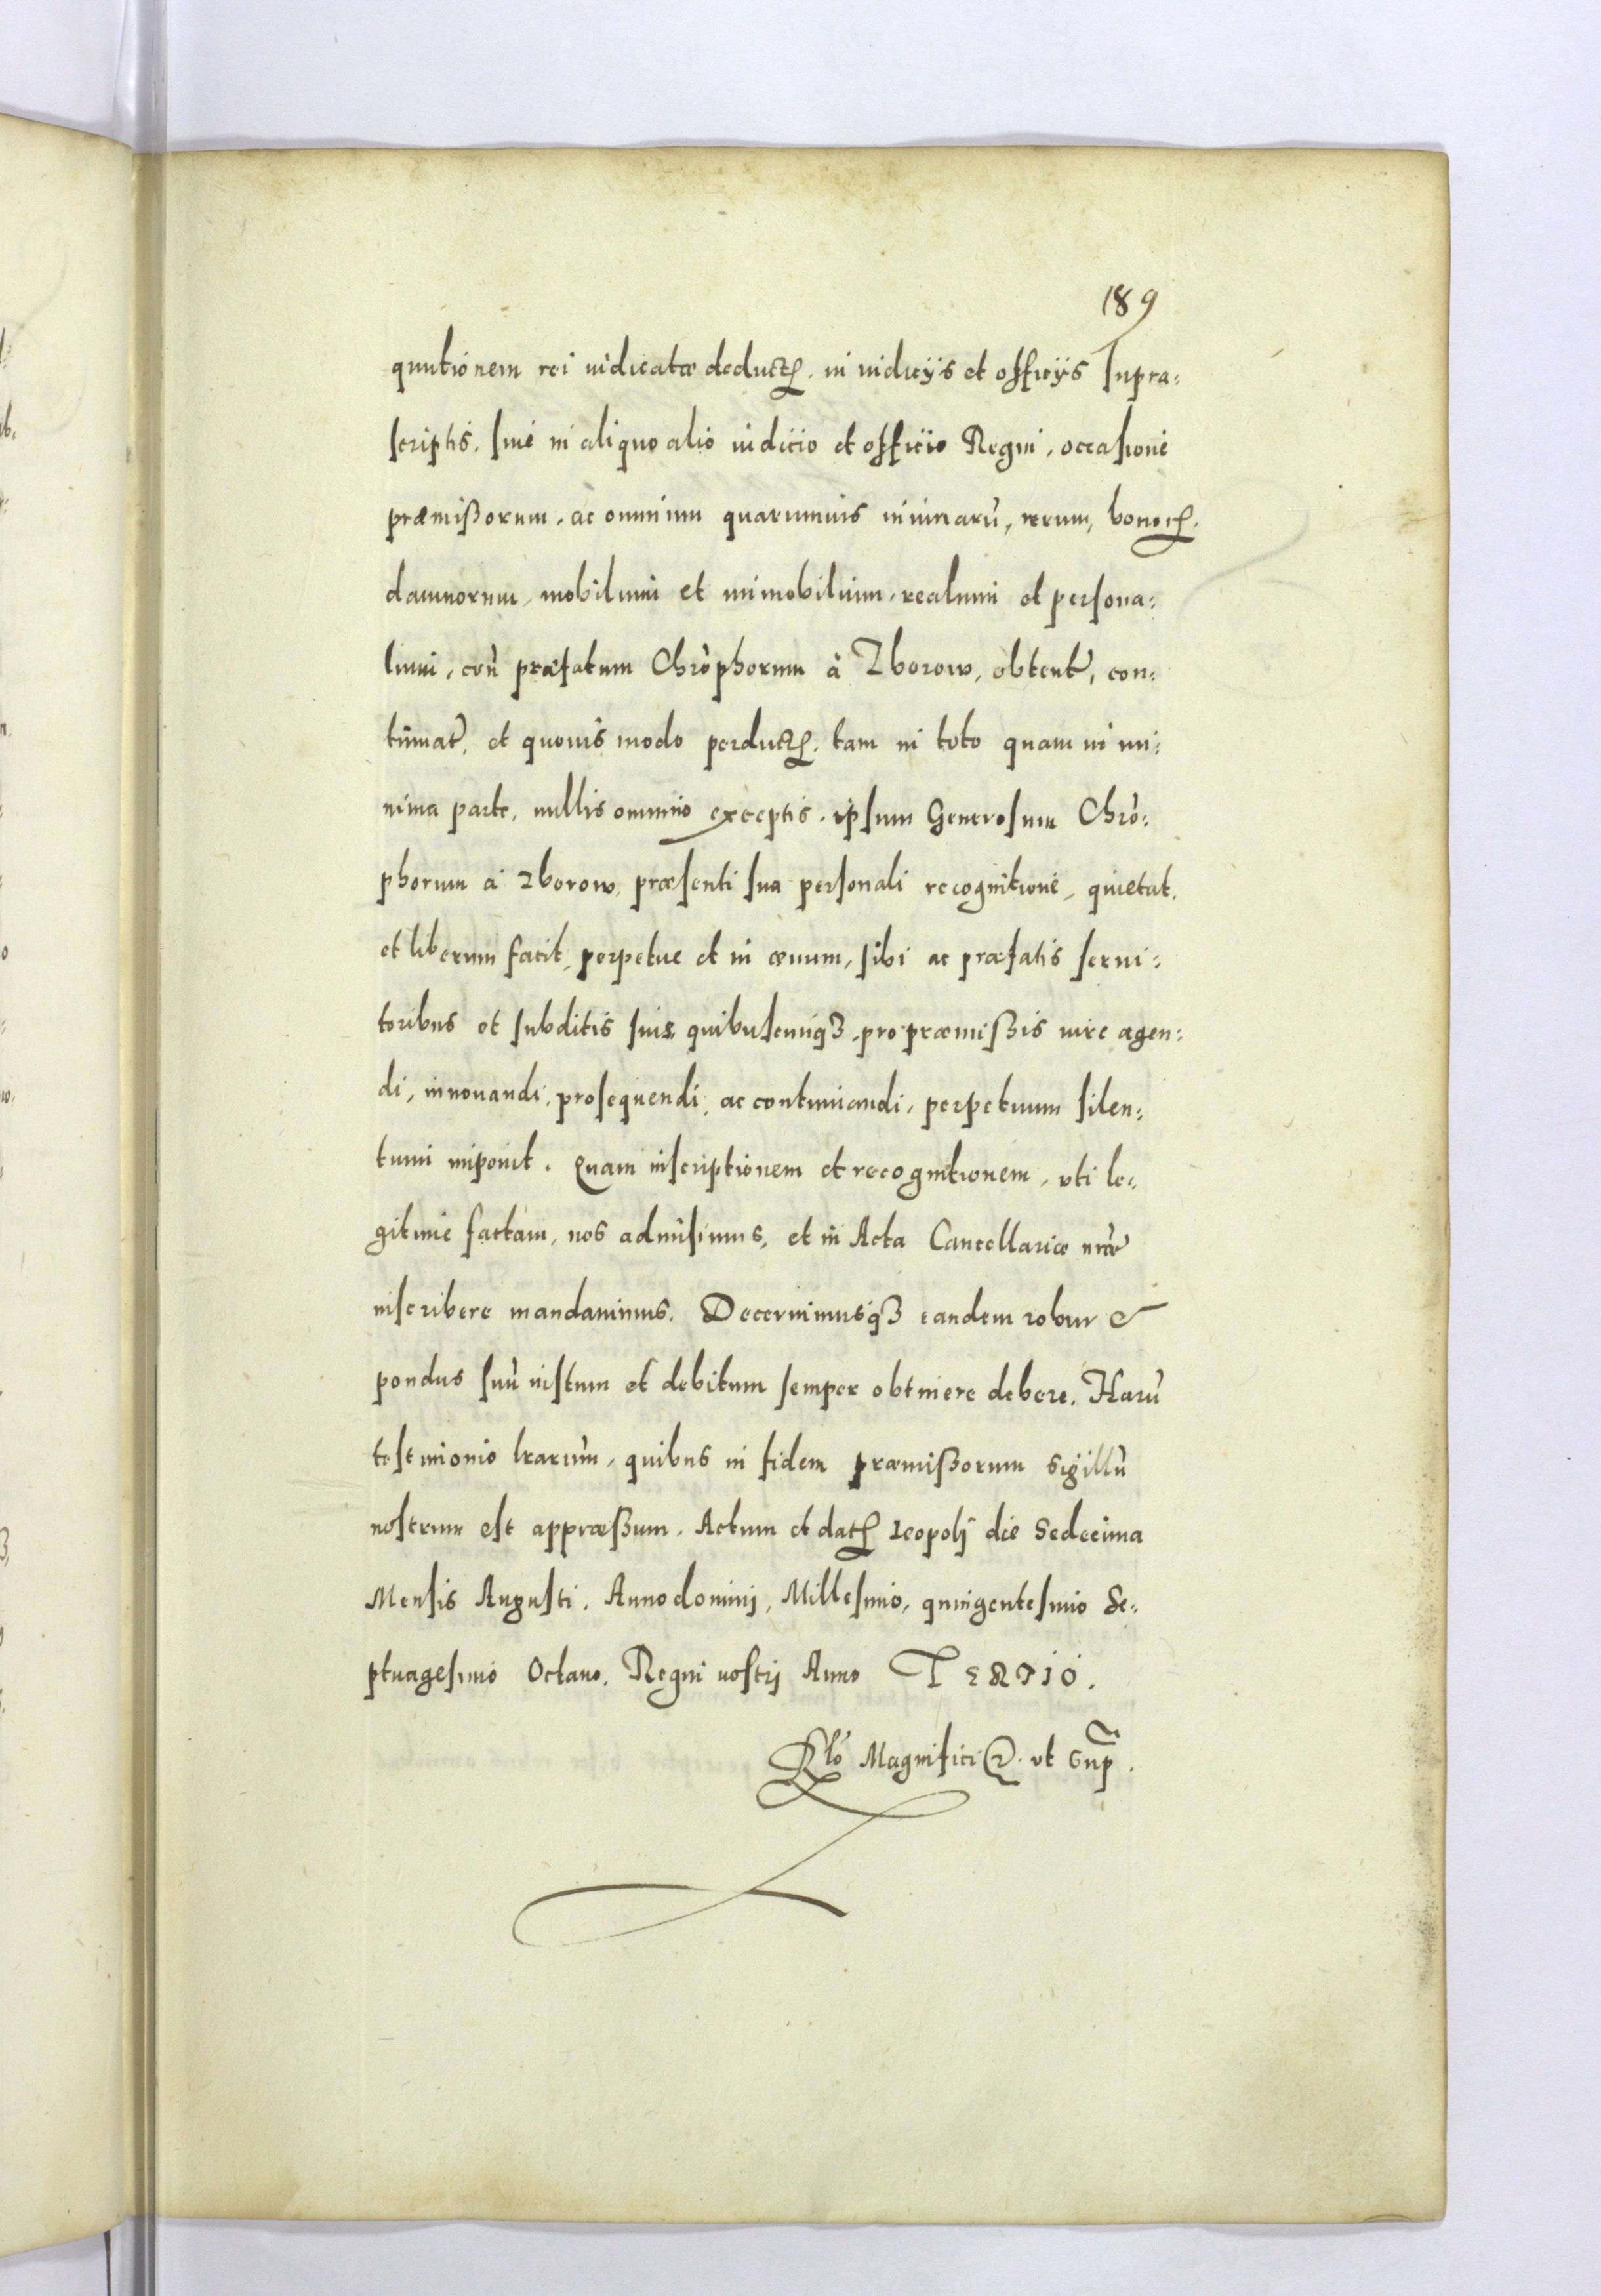 189
quutionem rei iudicatæ deductꝝ. in iudicÿs et officÿs supra:
scriptis, siue in aliquo alio iudicio et officio Regni, occasione
præmißorum, ac omnium quarumuis iniuriarũ, rerum, bonorꝝ.
damnorum, mobilium et immobilium, realium et persona:
lium, coñ præfatum Chrõphorum à Zborow, obtent̃, con:
tinuat̃, et quouis modo perductꝝ. tam in toto quam in mi:
nima parte, nullis omnino exceptis. ipsum Generosum Chrõ:
phorum à Zborow, præsenti sua personali recognitione, quietat.
et liberum facit, perpetue et in æuum, sibi ac præfatis serui:
toribus et subditis suis quibuscunqꝫ, pro præmißis iure agen:
di, innouandi, prosequendi, ac continuandi, perpetuum silen:
tium imponit. Quam inscriptionem et recognitionem, vti le:
gitime factam, nos admisimus, et in Acta Cancellariæ nr̃æ
inscribere mandauimus. Decernimusqꝫ eandem robur &
pondus suũ iustum et debitum semper obtinere debere. Harũ
testimonio lr̃arum, quibus in fidem præmißorum sigillũ
nostrum est appræßum. Actum et datꝝ Leopolj die Sedecima
Mensis Augusti. Anno dominj, Millesimo, quingentesimo Se:
ptuagesimo Octauo. Regni nostrj Anno TERTIO.
Rl̃o Magnifici &c. vt Sup̃.